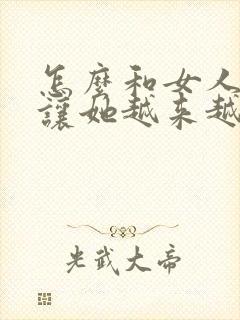 怎麼和女人
讓她越來越
光武大帝